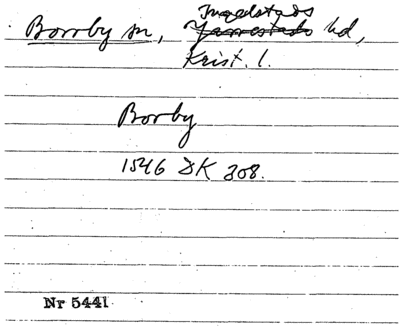 Ingelstads
Borrby sn, Jerrestads hd,
Krist. l.
Borby
1546 DK 308.
Nr 5441